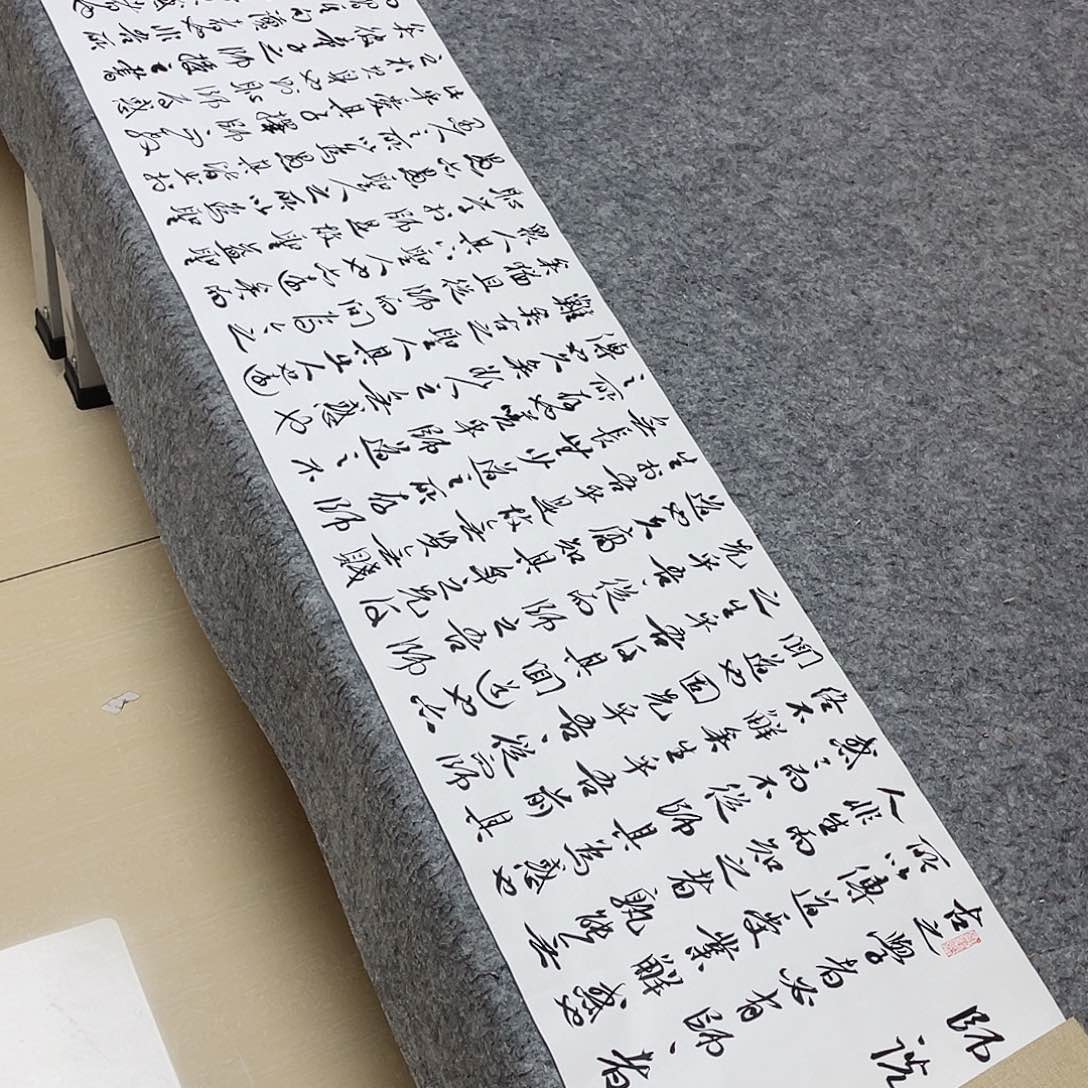 師說
古之學者必有師、者
所以傳道受業解惑也
人非生而知之者孰能無
惑、而不從師其為惑也
終不解矣生乎吾前其
聞道也固先乎吾、從而師
之生乎吾後其聞道也亦
先乎吾、從而師之吾師
道也夫庸知其年之先後
生於吾乎是故無貴無賤
無長無少道之所存師
之所存也嗟乎師道、不
傳也久矣欲人之無惑也
難矣古之聖人其出人也遠
矣猶且從師而問焉今之
眾人其下聖人也亦遠矣而
恥學於師是故聖益聖
愚益愚聖人之所以為聖
愚人之所以為愚其皆出於
此乎愛其子擇師而教
之於其身也則恥師焉惑
矣彼童子之師授之書